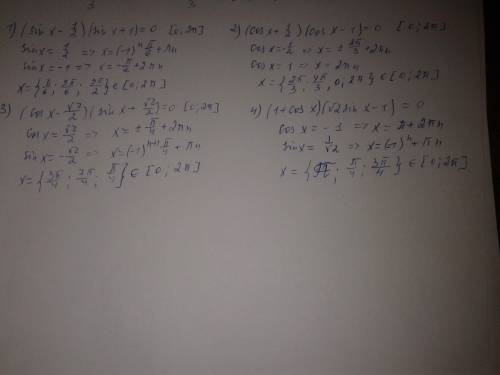 1) (sin x - 1/2)(sin x + 1) = 0 [0; 2π]
sin x = 1/2 => x = (-1)ⁿ π/6 + πn
sin x = -1 => x = -π/2 + 2πn
x = {π/6; 5π/6; 3π/2} ∈ [0; 2π]
2) (cos x + 1/2)(cos x - 1) = 0 [0; 2π]
cos x = -1/2 => x = ± 2π/3 + 2πn
cos x = 1 => x = 2πn
x = {2π/3; 4π/3, 0, 2π} ∈ [0; 2π]
3) (cos x - √2/2)(sin x + √2/2) = 0 [0; 2π]
cos x = √2/2 => x = ± π/4 + 2πn
sin x = -√2/2 => x = (-1)ⁿ⁺¹ π/4 + πn
4) (1 + cos x)(√2 sin x - 1) = 0
cos x = -1 => x = π + 2πn
sin x = 1/√2 => x = (-1)ⁿ + πn
x = {π; π/4; 3π/4} ∈ [0; 2π]